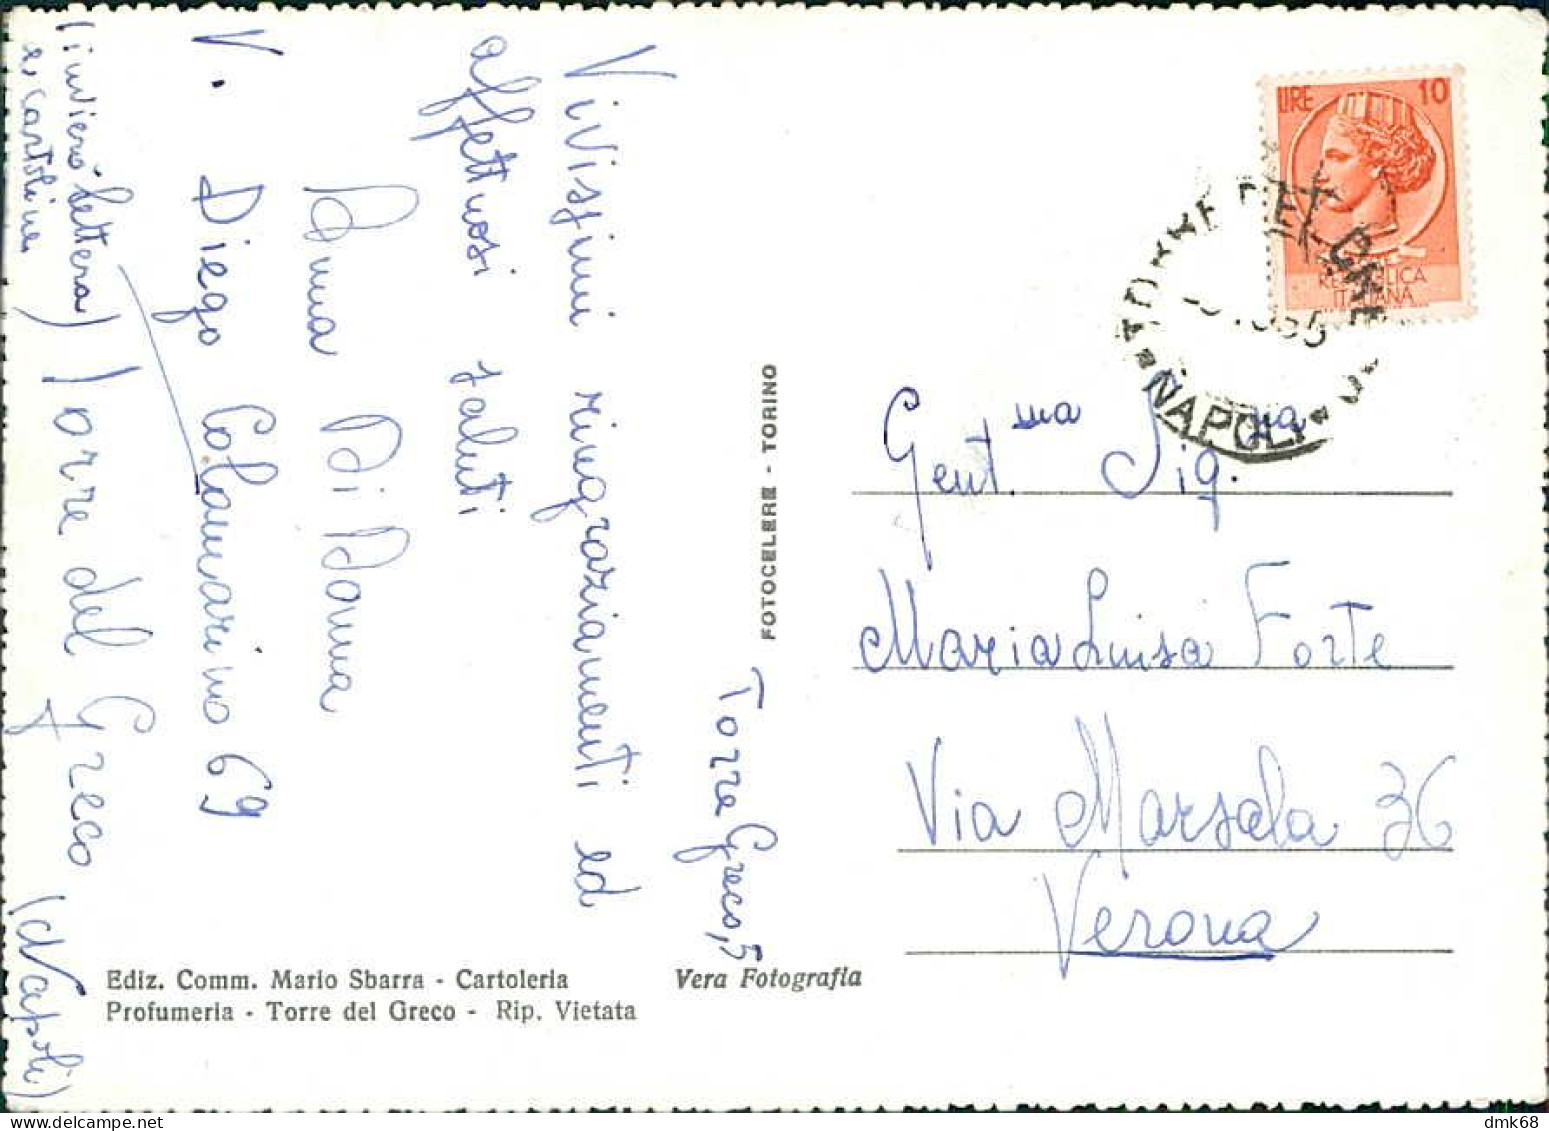 Torre Greco, 5
Vivissimi ringraziamenti ed
affettuosi saluti
Anna Di Donna
V. Diego Colamarino 69
Torre del Greco (Napoli)
(invierò lettera)
e, cartoline
FOTOCELERE - TORINO
Ediz. Comm. Mario Sbarra - Cartoleria
Profumeria - Torre del Greco - Rip. Vietata
Vera Fotografia
LIRE 10
REPUBBLICA
ITALIANA
TORRE DEL GRECO
NAPOLI
Gent.ma Sig.na
Maria Luisa Forte
Via Marsala 36
Verona
dmk68